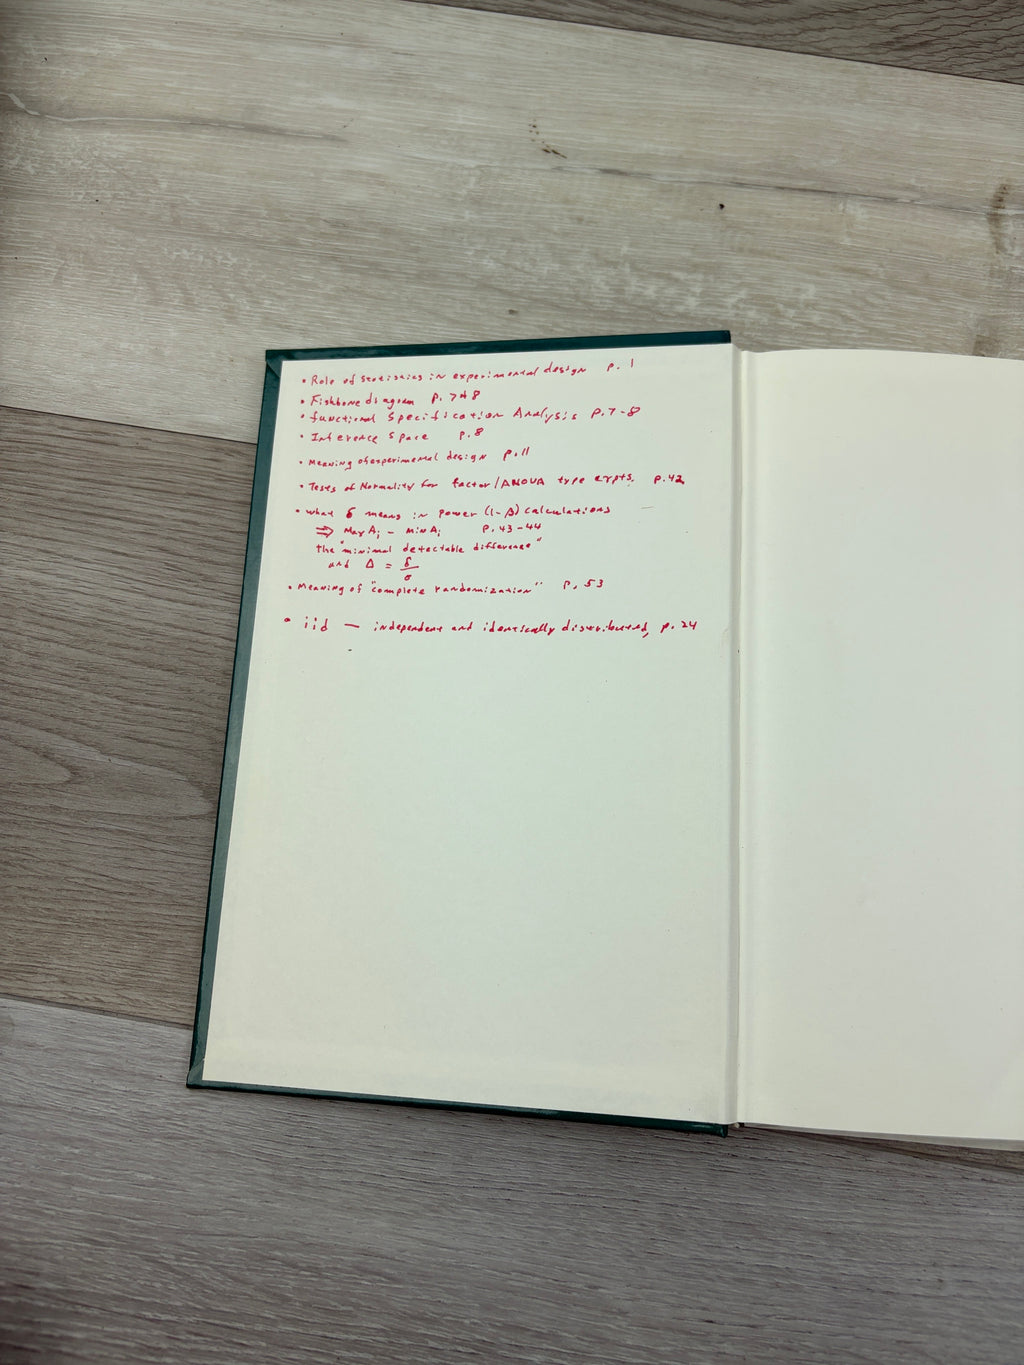 • Role of statistics in experimental design p. 1
• Fishbone diagram p. 7+8
• functional Specification Analysis p. 7-8
• Inference Space p. 8
• Meaning of experimental design p. 11
• Tests of Normality for factor/ANOVA type expts. p. 42
• what δ means in power (1-β) calculations
⇒ Max Aᵢ - Min Aᵢ p. 43-44
the "minimal detectable difference"
and Δ = δ/σ
• Meaning of "complete randomization" p. 53
• iid — independent and identically distributed, p. 24